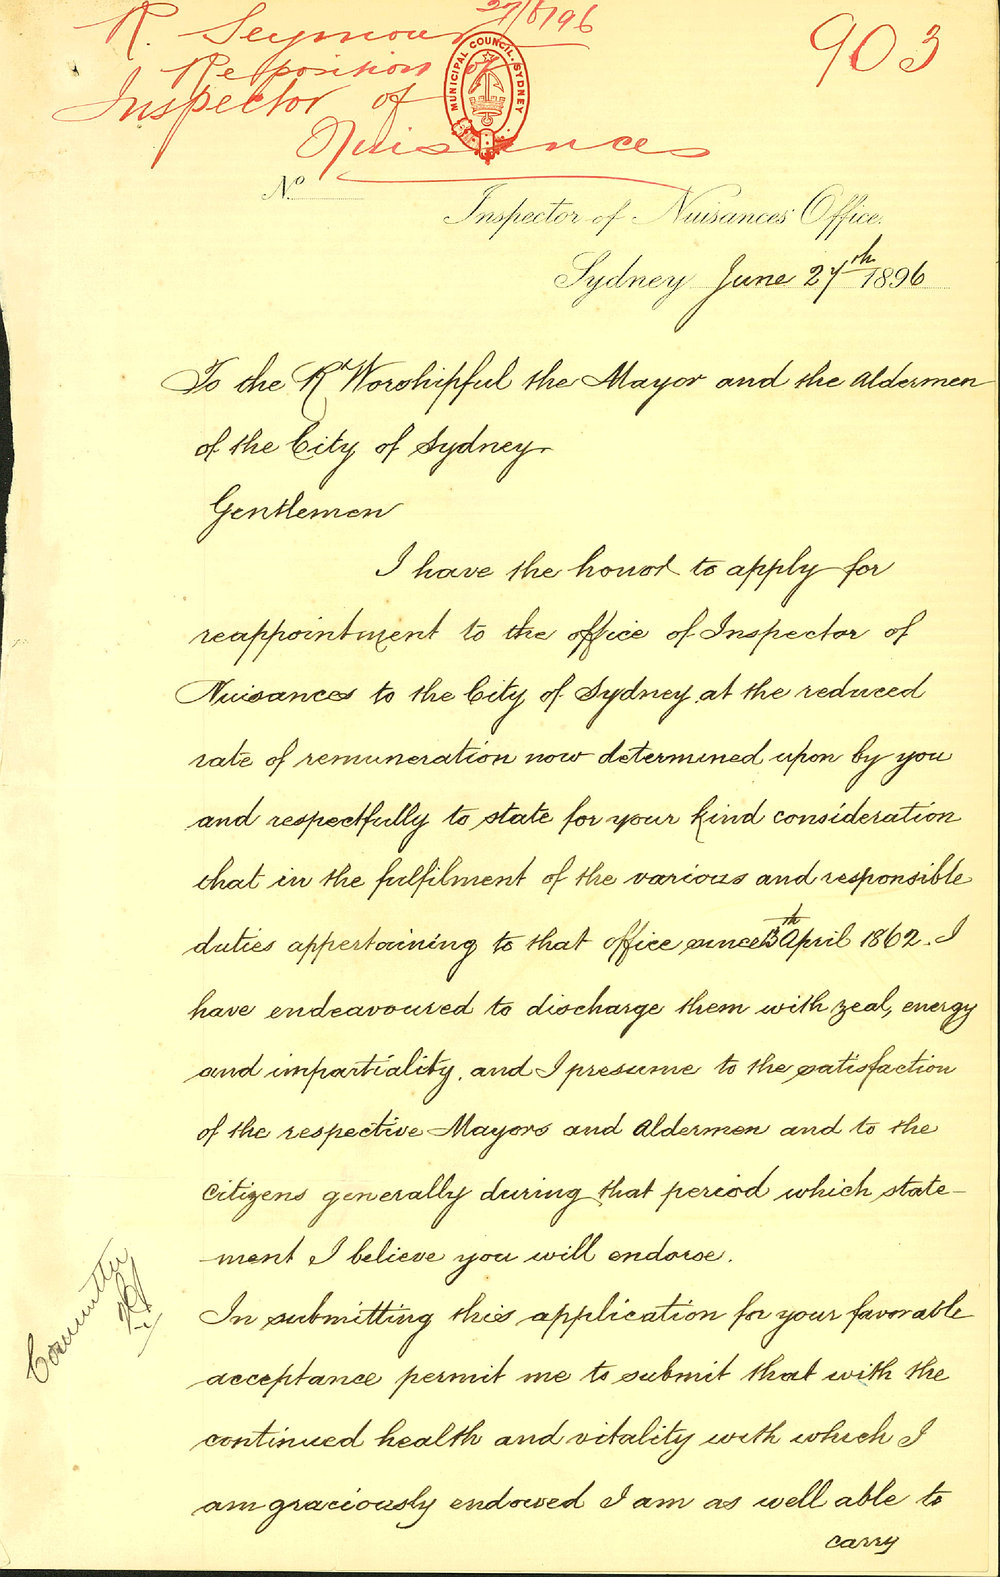 27/6/96
R. Seymour
Re position of
Inspector of
Nuisances
903
MUNICIPAL COUNCIL. SYDNEY
No
Inspector of Nuisances' Office.
Sydney June 27th 1896
To the Rt Worshipful the Mayor and the Aldermen
of the City of Sydney
Gentlemen
I have the honor to apply for
reappointment to the office of Inspector of
Nuisances to the City of Sydney at the reduced
rate of remuneration now determined upon by you
and respectfully to state for your kind consideration
that in the fulfilment of the various and responsible
duties appertaining to that office since 13th April 1862. I
have endeavoured to discharge them with zeal, energy
and impartiality, and I presume to the satisfaction
of the respective Mayors and Aldermen and to the
Citizens generally during that period which state-
ment I believe you will endorse.
In submitting this application for your favorable
acceptance permit me to submit that with the
continued health and vitality with which I
am graciously endowed I am as well able to
carry
Committee